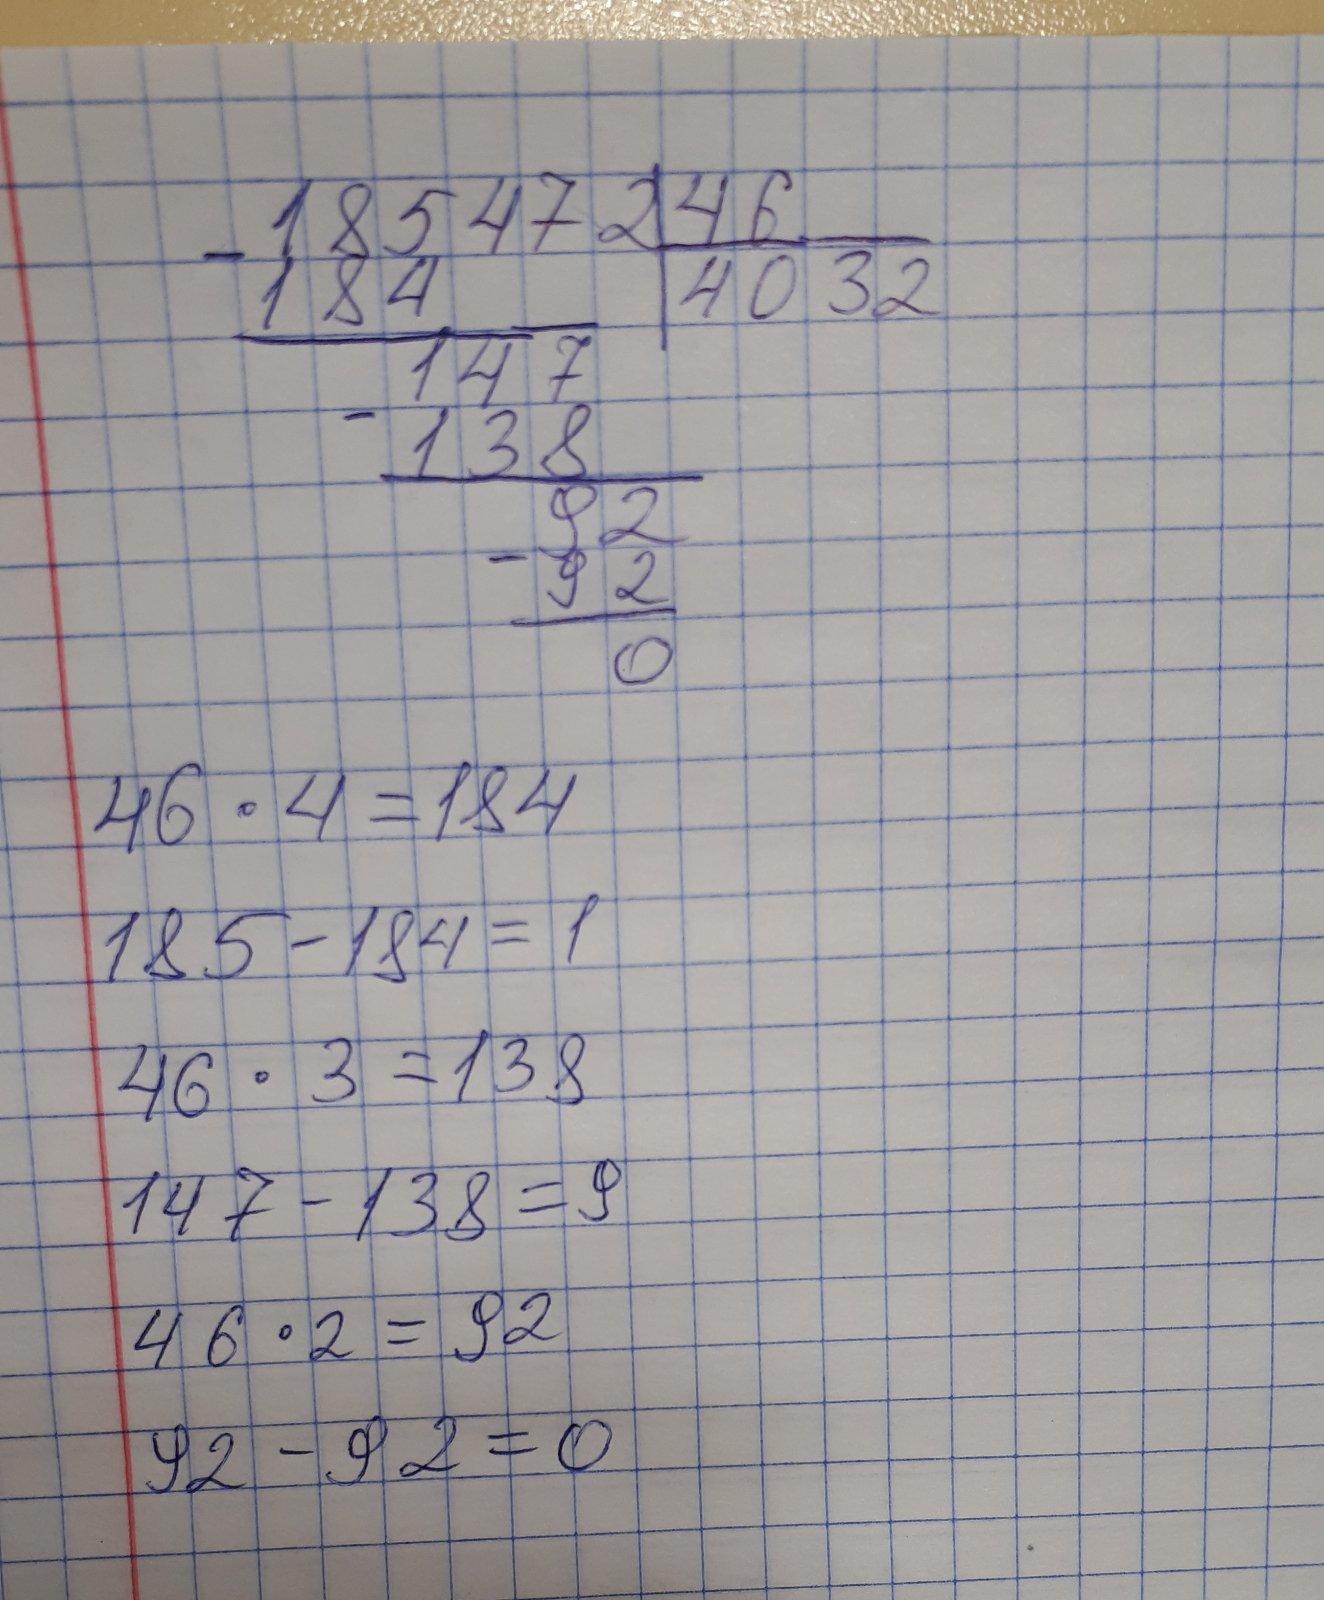 - 185472 46
184 4032
147
- 138
92
- 92
0
46 · 4 = 184
185 - 184 = 1
46 · 3 = 138
147 - 138 = 9
46 · 2 = 92
92 - 92 = 0